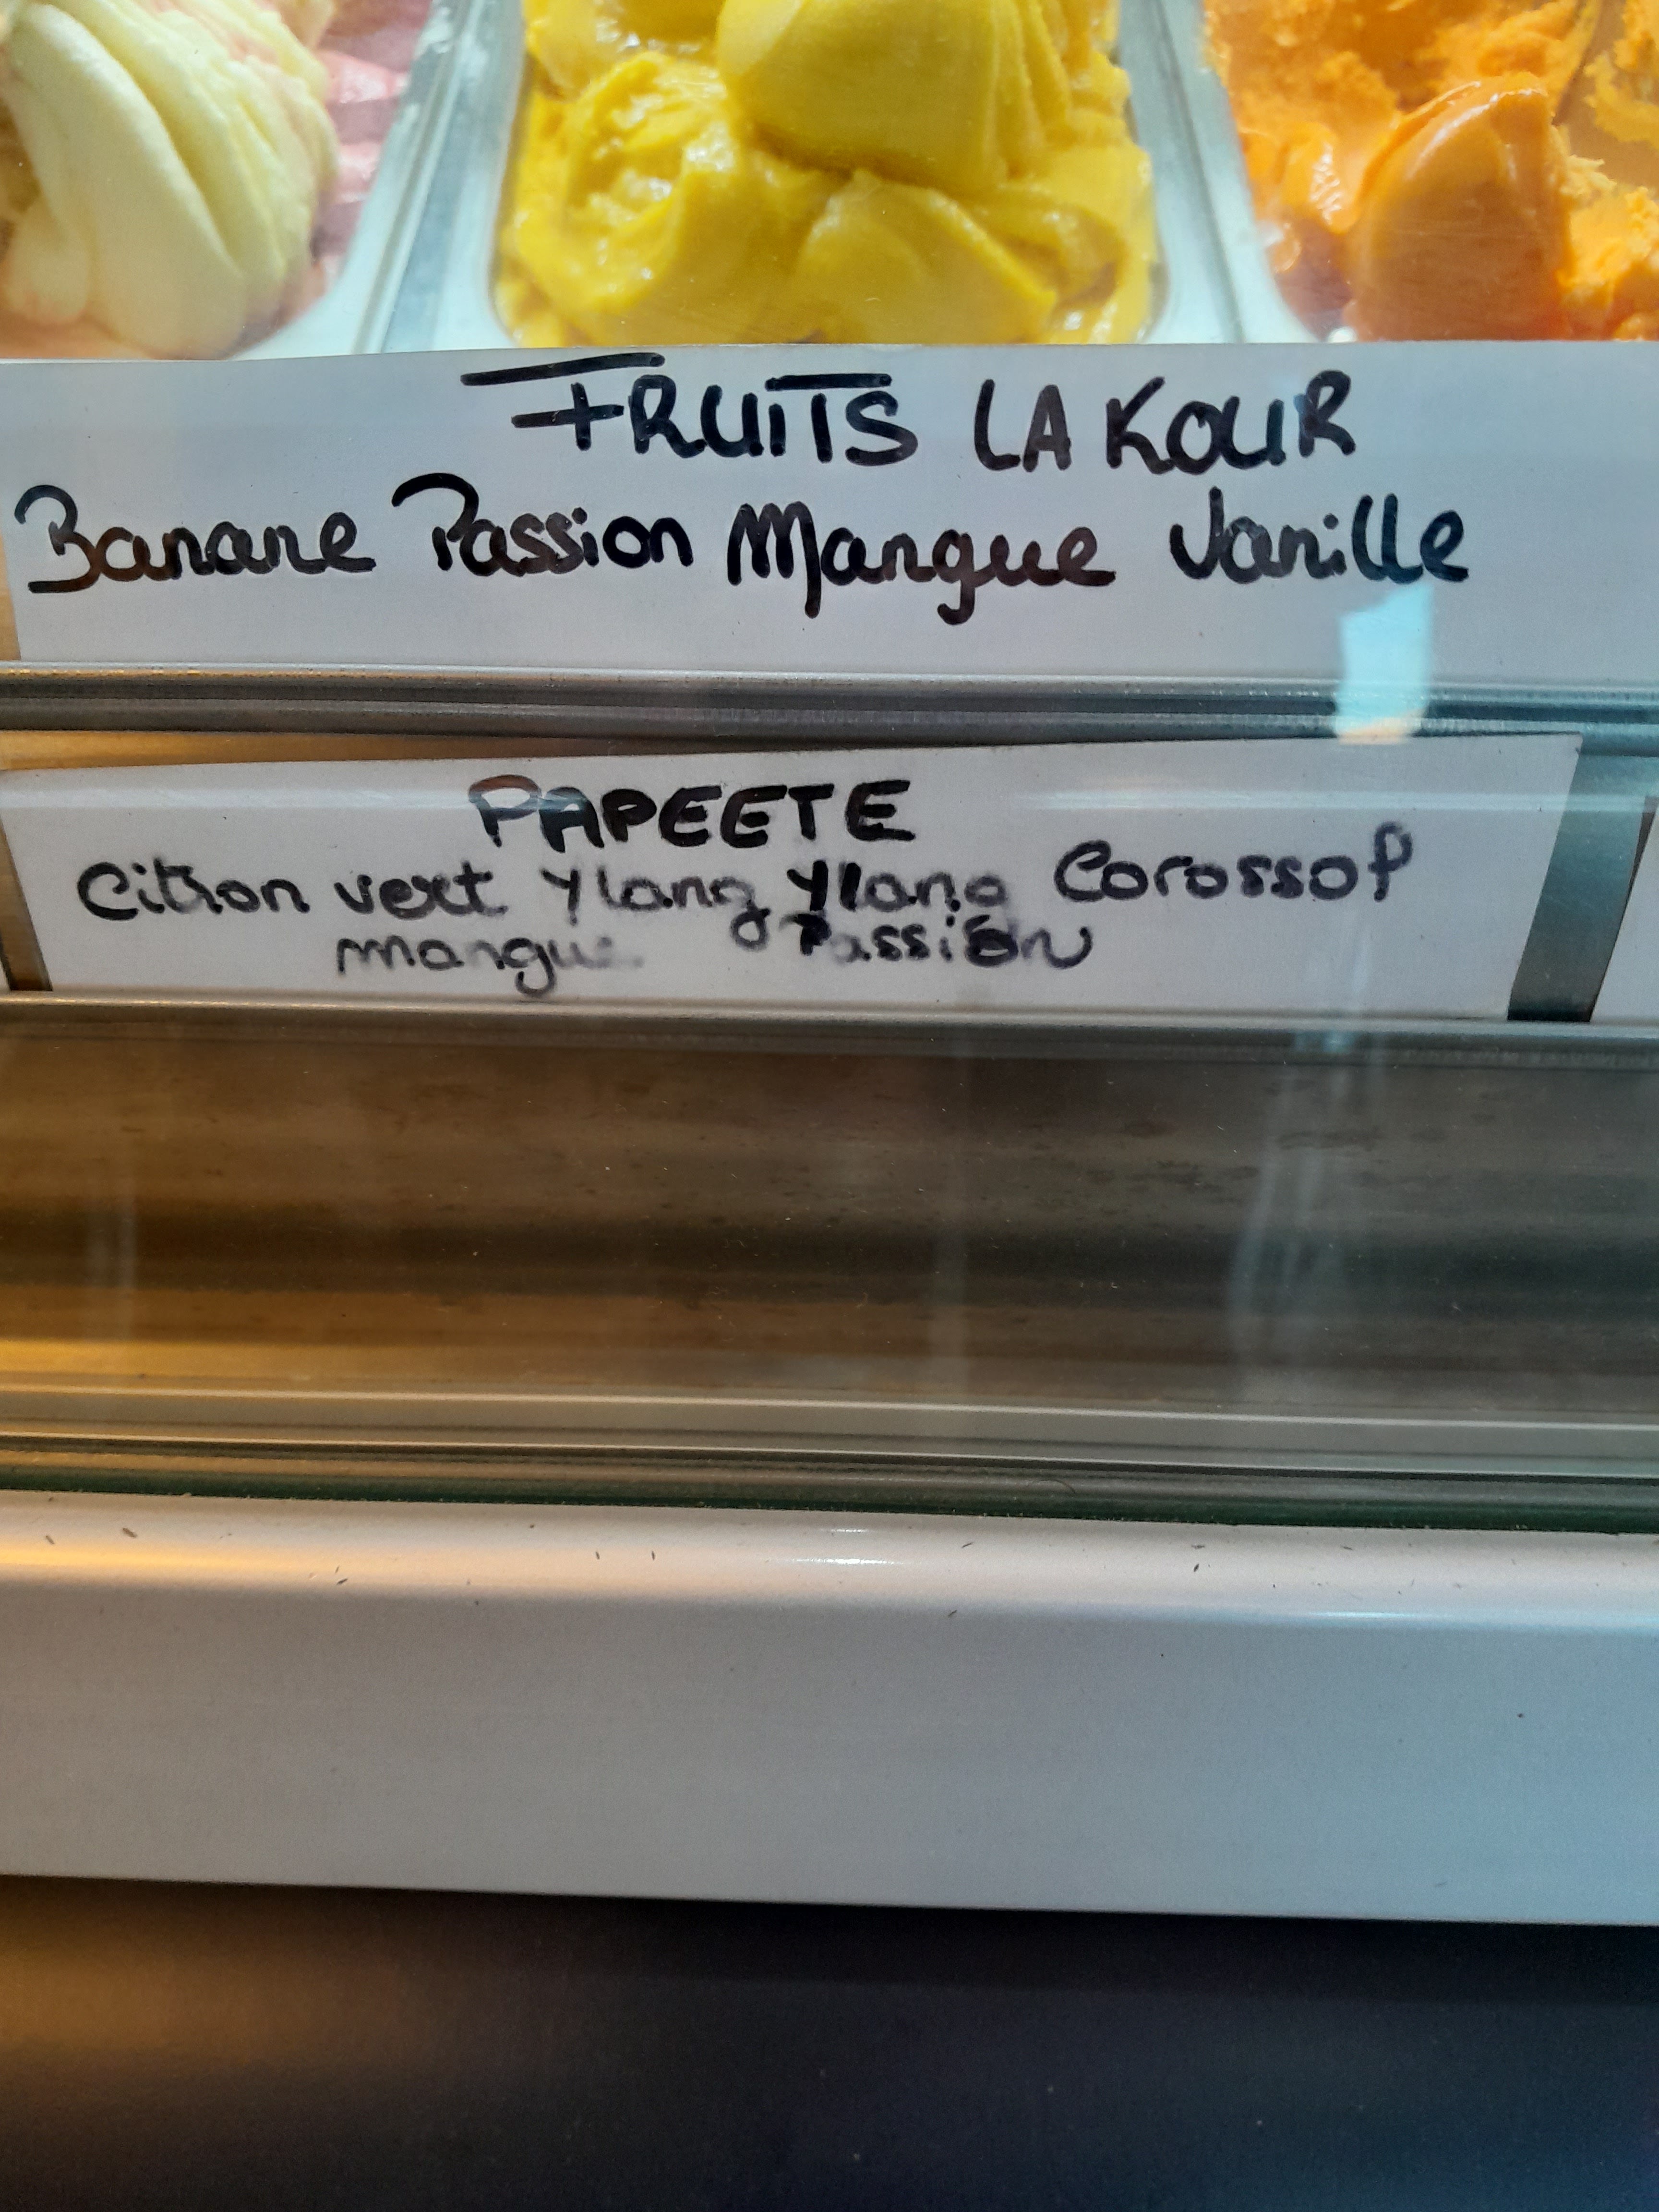 FRUITS LA KOUR
Banane Passion Mangue Vanille
PAPEETE
Citron vert Ylang Ylang Corossol
mangue Passion